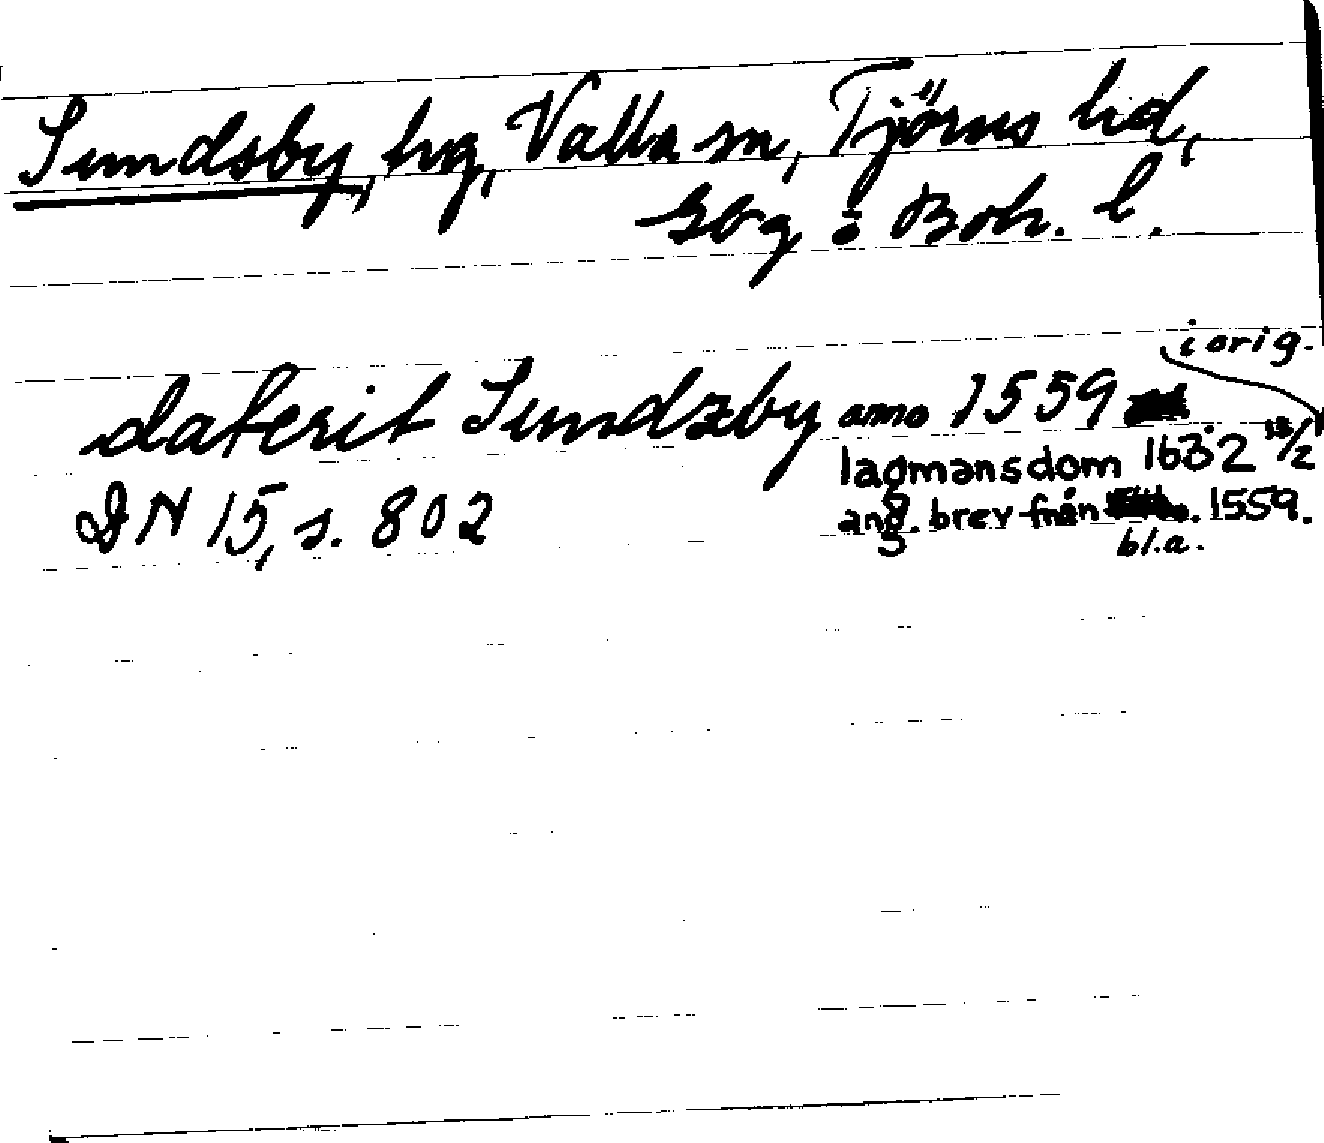 Sundsby, hg, Valla sn, Tjörns hd,
Gbg o Boh. l.
i orig.
daterit Sundzby anno 1559
lagmansdom 1632 13/2
DN 15, s. 802
ang. brev från 1559.
bl.a.